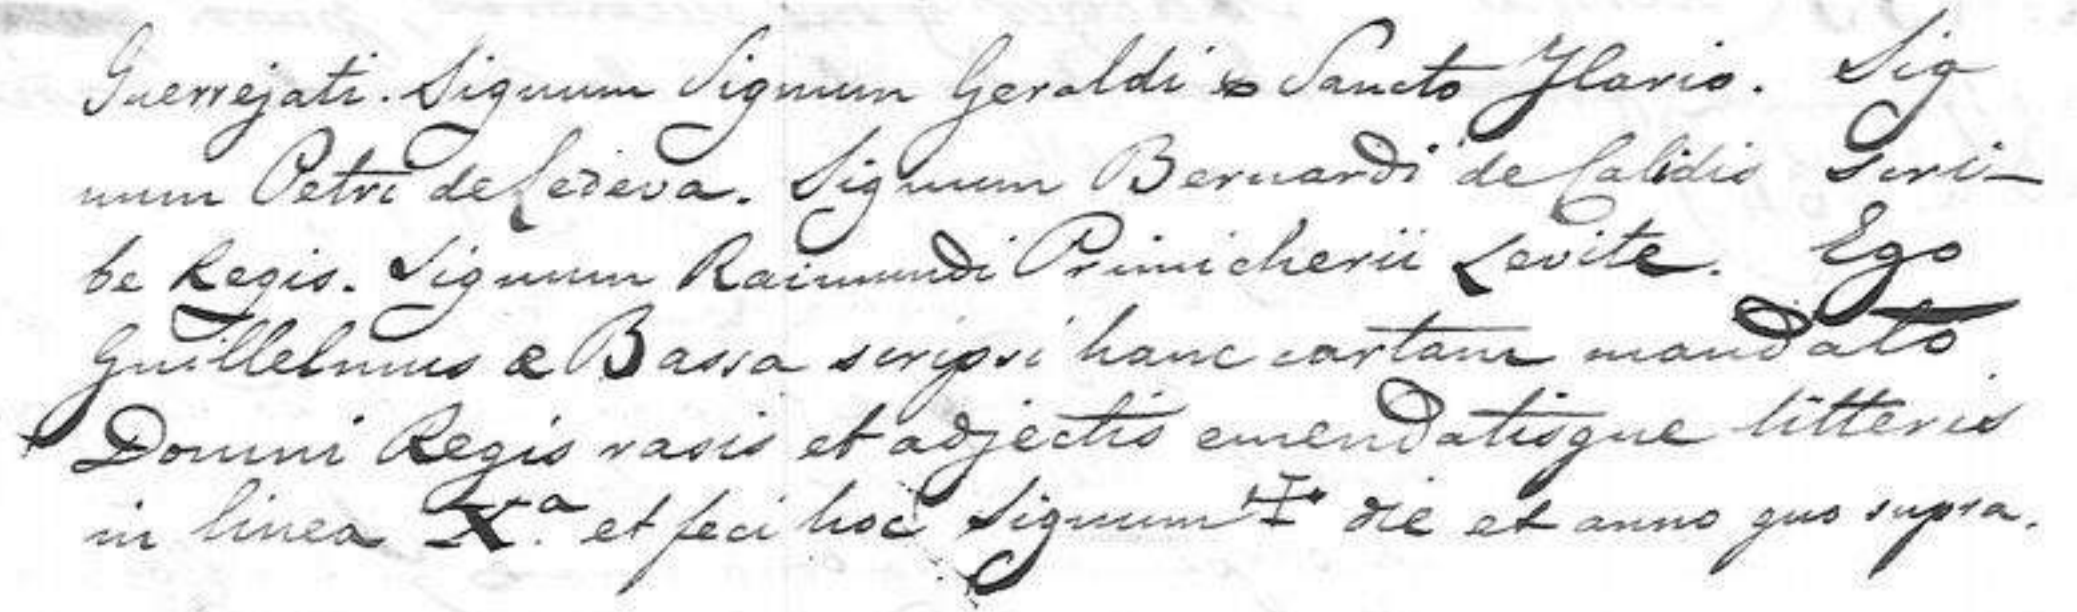 Guerrejati. Signum Signum Geraldi de Sancto Ylario. Sig
num Petri de Ledeva. Signum Bernardi de Calidis Scri-
be Regis. Signum Raimundi Primicherii Levite. Ego
Guillelmus de Bassa scripsi hanc cartam mandato
Domini Regis rasis et adjectis emendatisque litteris
in linea X.ª et feci hoc Signum ✝ die et anno quo supra.